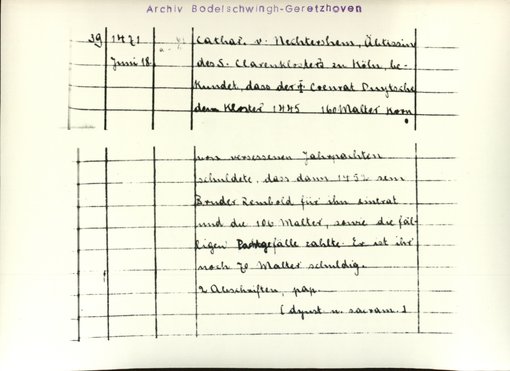 Archiv Bodelschwingh-Geretzhoven
39 1471 Cathar. v. Nechtershem, Äbtissin
Juni 18. des S. Clarenklosters zu Köln, be-
kundet, dass der † Coenrat Duytsche
dem Kloster 1445 160 Malter Korn
von versessenen Jahrpachten
schuldete, dass dann 1452 sein
Bruder Rembold für ihn eintrat
und die 106 Malter, sowie die fäl-
ligen Pachtgefälle zahlte. Er ist ihr
noch 70 Malter schuldig.
2 Abschriften, pap.